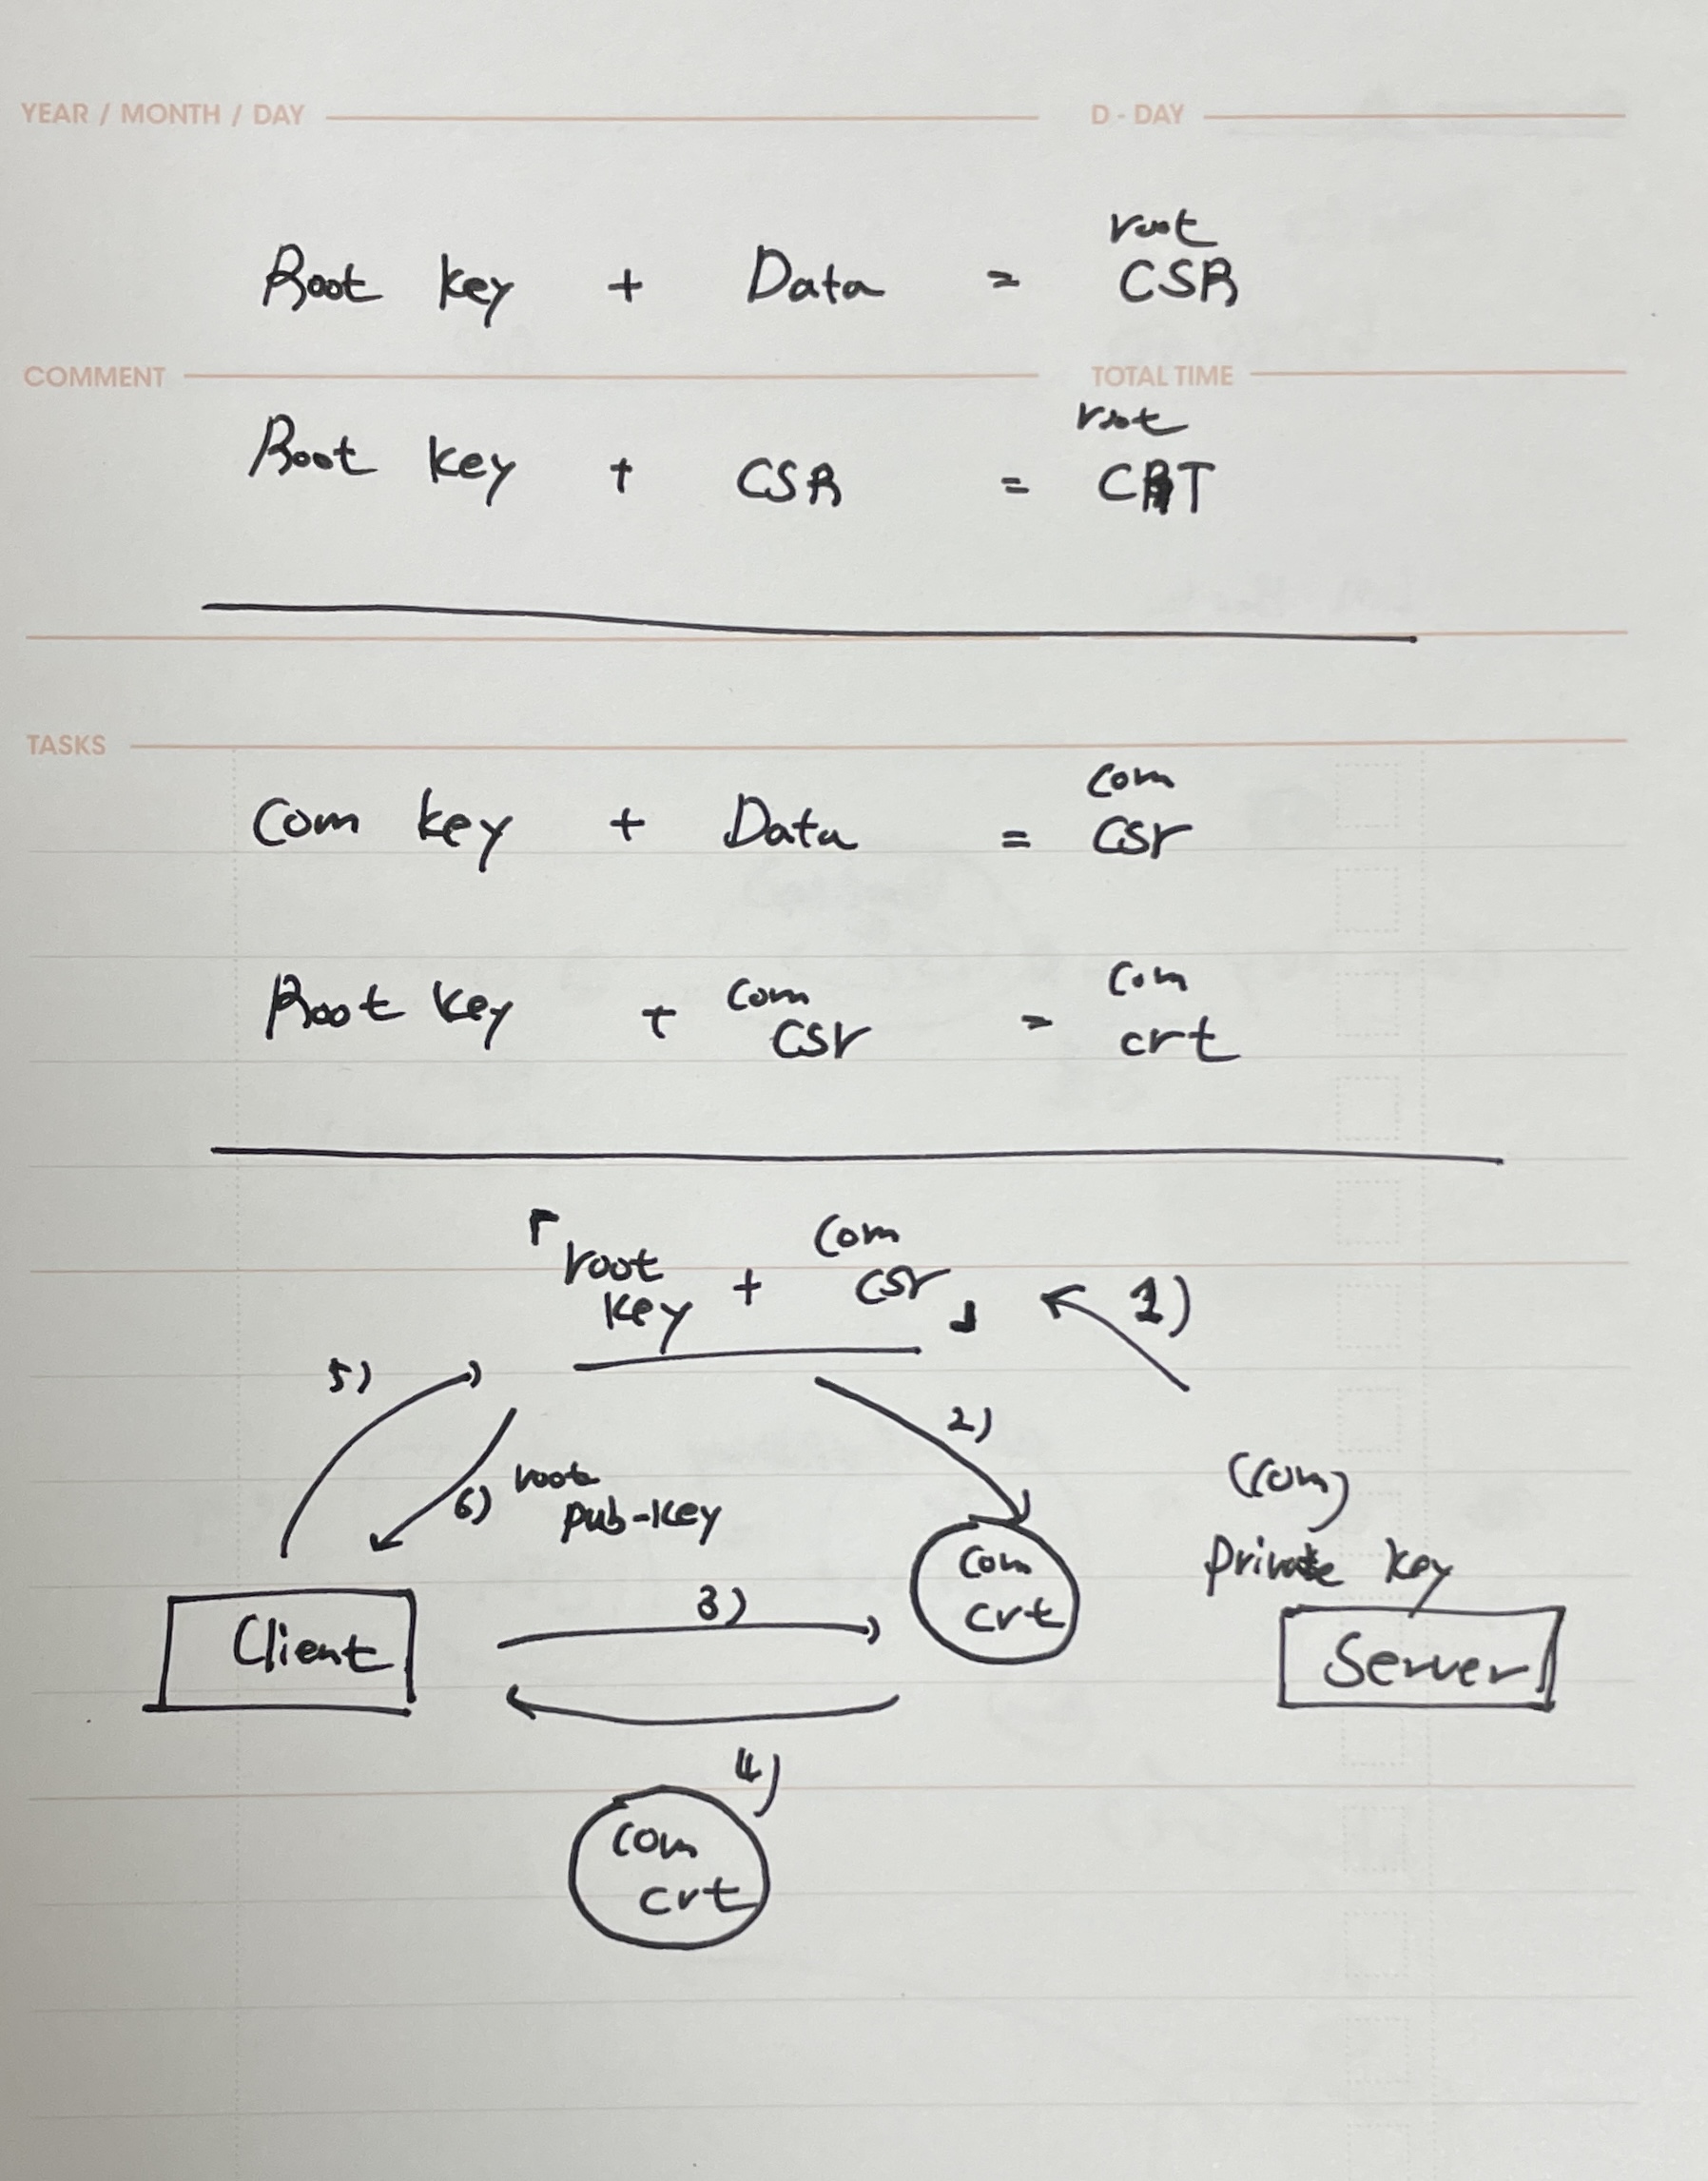 YEAR / MONTH / DAY D - DAY
root
Root key + Data = CSR
COMMENT TOTAL TIME
root
Root key + CSR = CRT
TASKS
Com
Com key + Data = Csr
Com
Root key + Com csr = crt
「root key + Com csr」 1)
5) 2)
6) root pub-key
(com)
private key
Com
crt
3)
Client
Server
4)
Com
crt